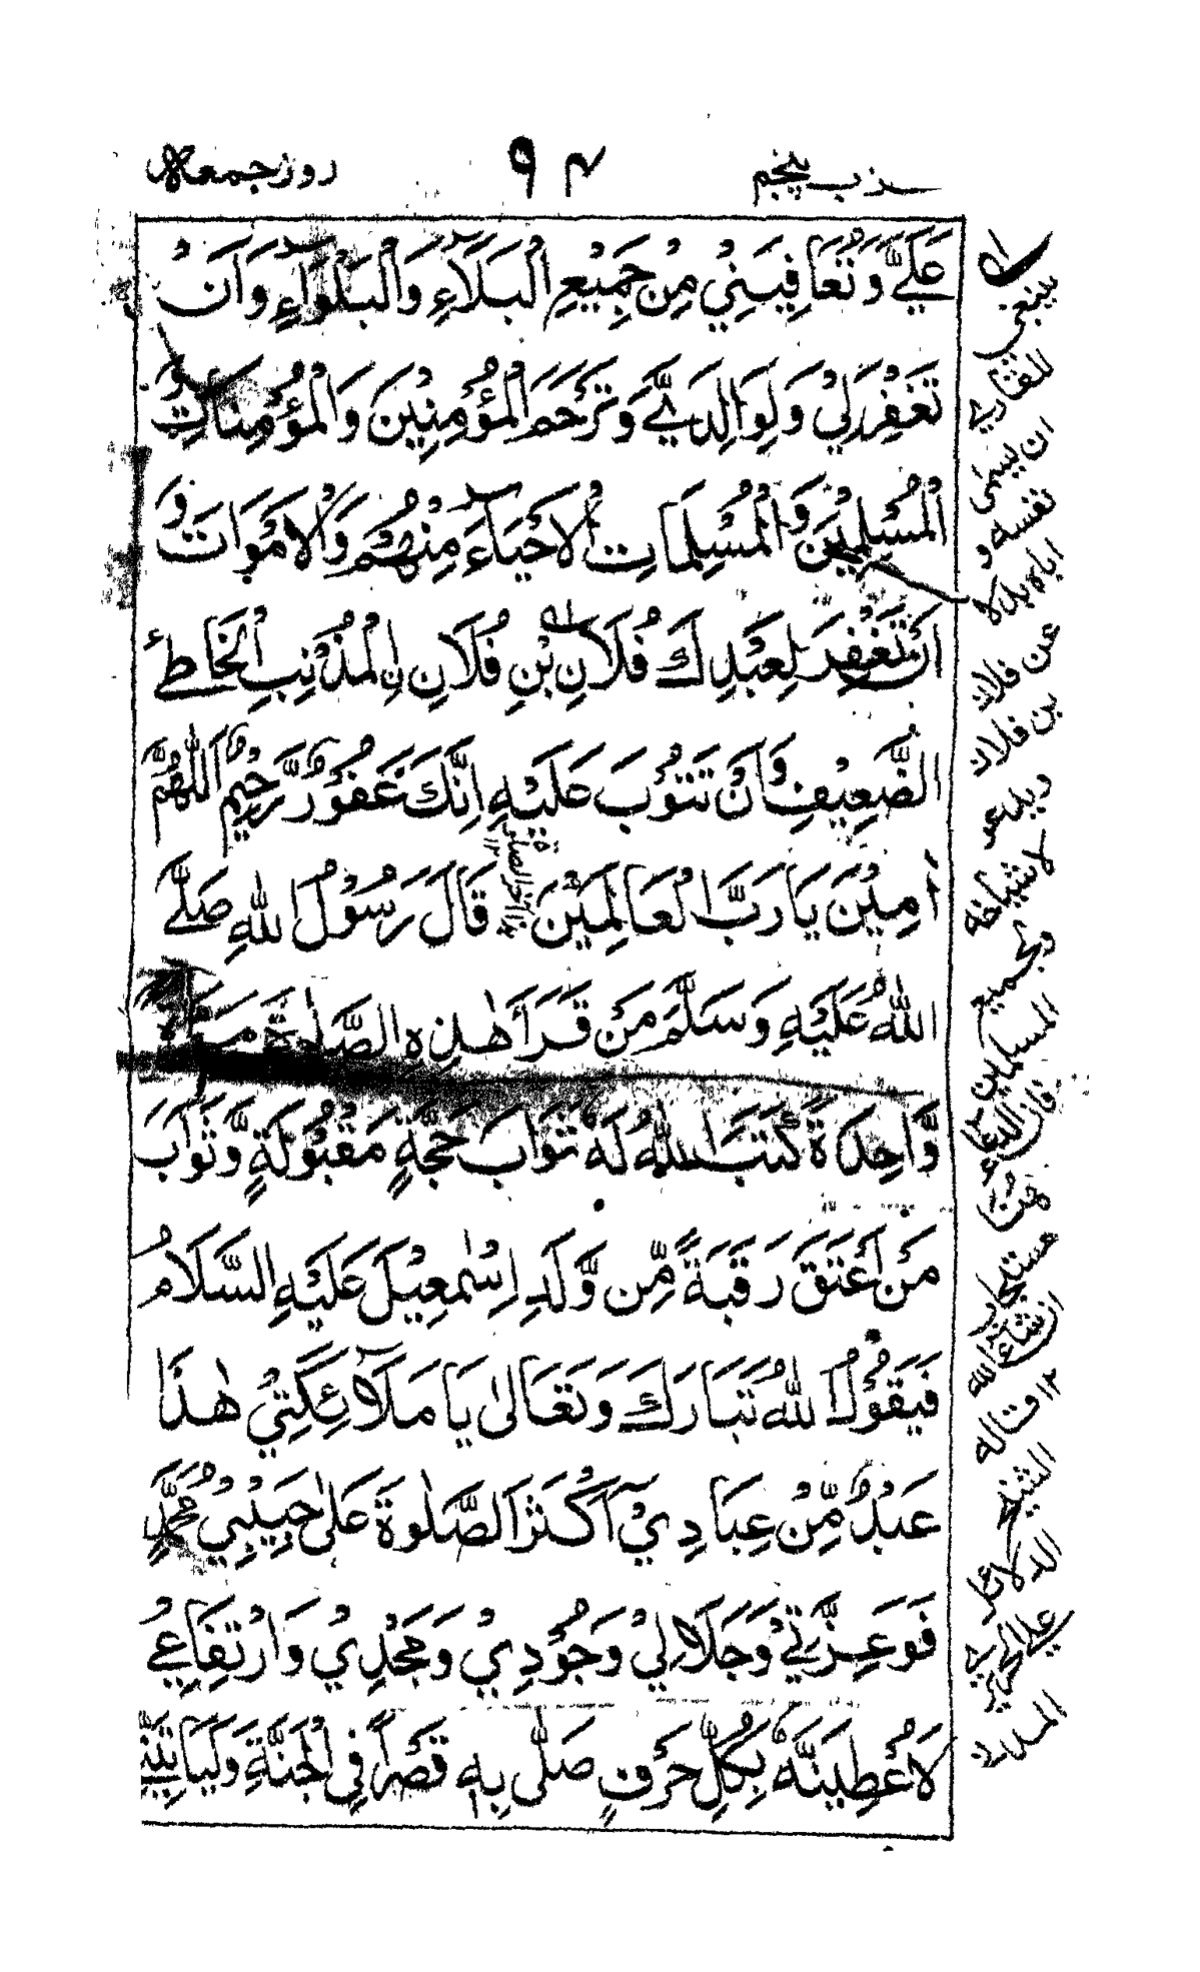 حزب پنجم ٩٤ روز جمعه
عَلَيَّ وَتُعَافِيَنِيْ مِنْ جَمِيْعِ الْبَلَآءِ وَالْبَلْوَآءِ وَاَنْ
تَغْفِرَ لِيْ وَلِوَالِدَيَّ وَتَرْحَمَ الْمُؤْمِنِيْنَ وَالْمُؤْمِنَاتِ وَ
الْمُسْلِمِيْنَ وَالْمُسْلِمَاتِ الْاَحْيَآءَ مِنْهُمْ وَالْاَمْوَاتَ وَ
اَنْ تَغْفِرَ لِعَبْدِكَ فُلَانِ بْنِ فُلَانِ نِ الْمُذْنِبِ الْخَاطِئِ
الضَّعِيْفِ وَاَنْ تَتُوْبَ عَلَيْهِ اِنَّكَ غَفُوْرٌ رَّحِيْمٌ اَللّٰهُمَّ
اٰمِيْنَ يَا رَبَّ الْعَالَمِيْنَ قَالَ رَسُوْلُ اللّٰهِ صَلَّى
اللّٰهُ عَلَيْهِ وَسَلَّمَ مَنْ قَرَاَ هٰذِهِ الصَّلٰوةَ مَرَّةً
وَّاحِدَةً كَتَبَ اللّٰهُ لَهٗ ثَوَابَ حَجَّةٍ مَقْبُوْلَةٍ وَّثَوَابَ
مَنْ اَعْتَقَ رَقَبَةً مِّنْ وَّلَدِ اِسْمٰعِيْلَ عَلَيْهِ السَّلَامُ
فَيَقُوْلُ اللّٰهُ تَبَارَكَ وَتَعَالٰى يَا مَلَآئِكَتِيْ هٰذَا
عَبْدٌ مِّنْ عِبَادِيْ اَكْثَرَ الصَّلٰوةَ عَلٰى حَبِيْبِيْ مُحَمَّدٍ
فَوَعِزَّتِيْ وَجَلَالِيْ وَجُوْدِيْ وَمَجْدِيْ وَارْتِفَاعِيْ
لَاُعْطِيَنَّهٗ بِكُلِّ حَرْفٍ صَلّٰى بِهٖ قَصْرًا فِي الْجَنَّةِ وَلَيَاْتِيَنِّيْ
ينبغي
للقاري
ان يسمي
نفسه و
اباه بدلا
عن فلان
بن فلان
ويدعو
لاشياخه
ولجميع
المسلمين
فان الدعاء
هنا
مستجاب
ان شاء الله
١٢ قاله
الشيخ
الدلائل
علي الحريري
المدني